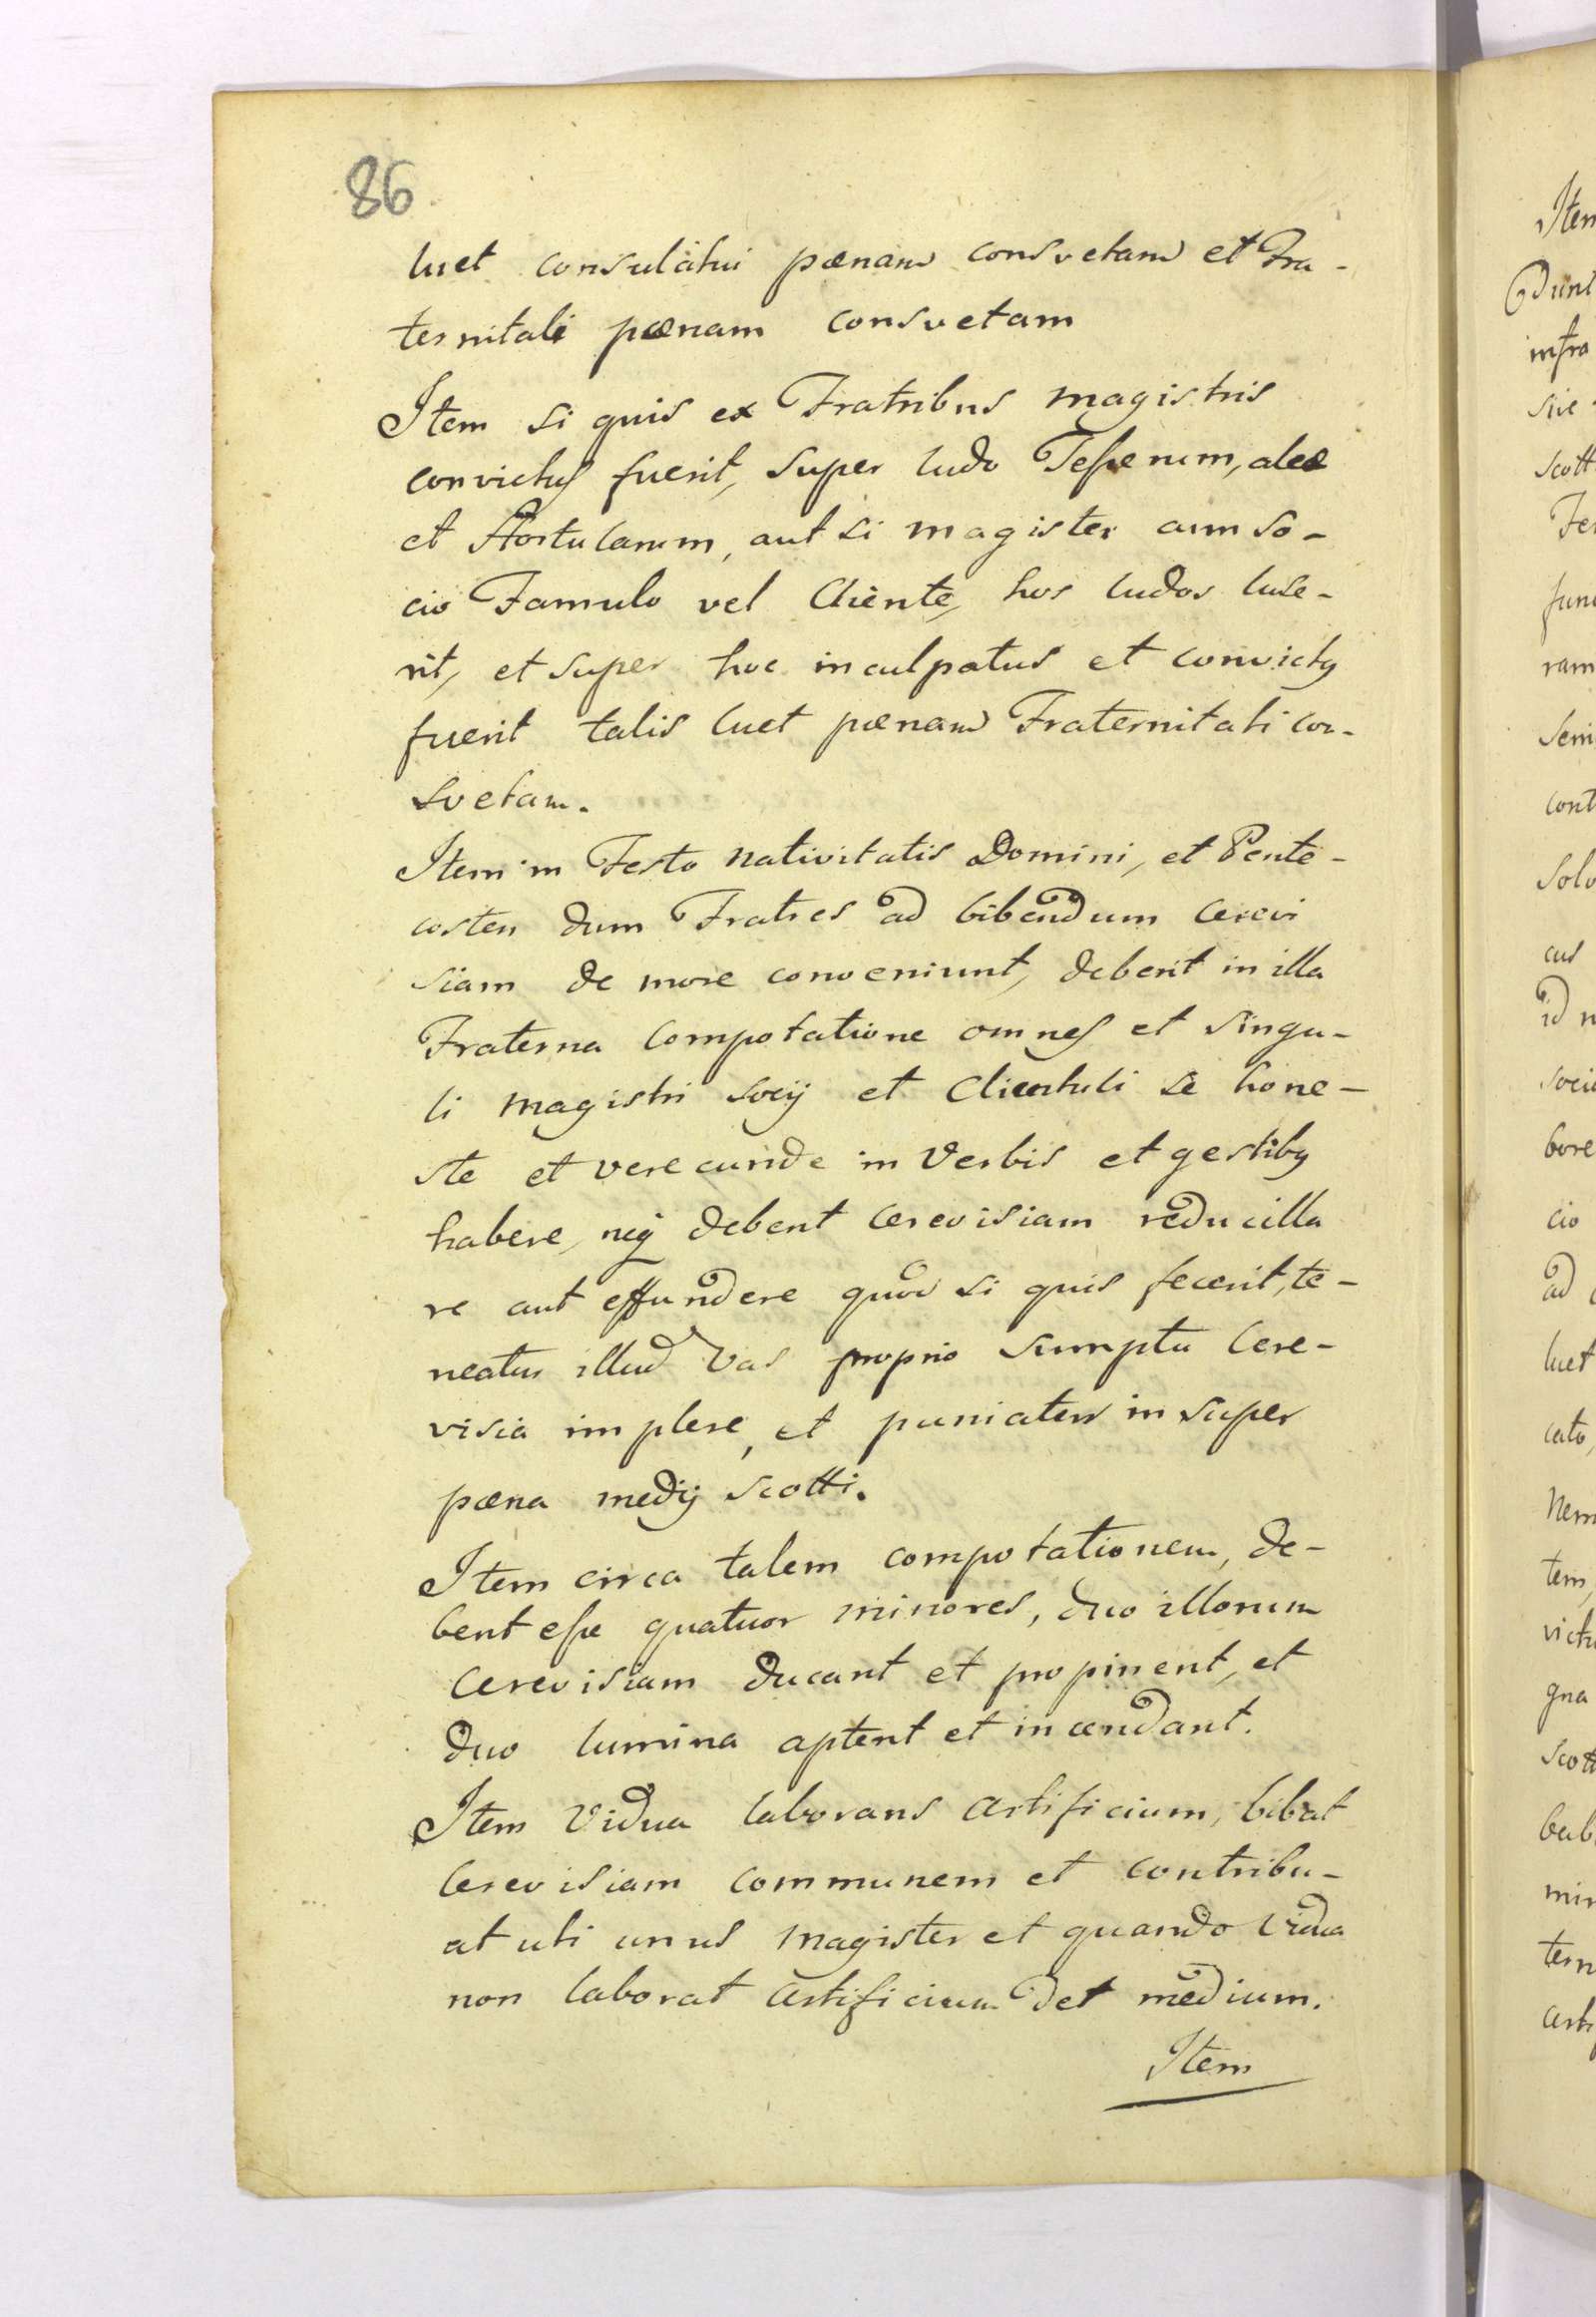 86
luet consulátui pœnam consvetam et Fra-
ternitali pœnam consvetam
Item si quis ex Fratribus magistris
convictus fuerit, super ludo Tesserum, aleæ
et Stortularum, aut si magister cum so-
cio Famulo vel Cliente, hos ludos luse-
rit, et super hoc inculpatus et convictus
fuerit talis luet pœnam Fraternitati con-
svetam.
Item in Festo Nativitatis Domini, et Pente-
costen dum Fratres ad bibendum Cerevi
siam de more conveniunt, deberit in illa
Fraterna Compotatione omnes et singu-
li magistri socij et Clientuli se hone-
ste et verecunde in Verbis et gestibus
habere, neq debent cerevisiam reducilla
re aut effundere quod si quis fecerit, te-
neatur illud Vas proprio sumptu Cere-
visia implere, et puniatur insuper
pœna medij scotti.
Item circa talem compotationem, de-
bent esse quatuor minores, duo illorum
Cerevisiam ducant et propinent, et
duo lumina aptent et incendant.
Item Vidua laborans artificium, bibat
Cerevisiam communem et contribu-
at uti unus Magister et quando Vidua
non laborat artificium det medium.
Item
Item
infra
sive
scott
cus
luet
cato,
tem,
gna
cio
ad